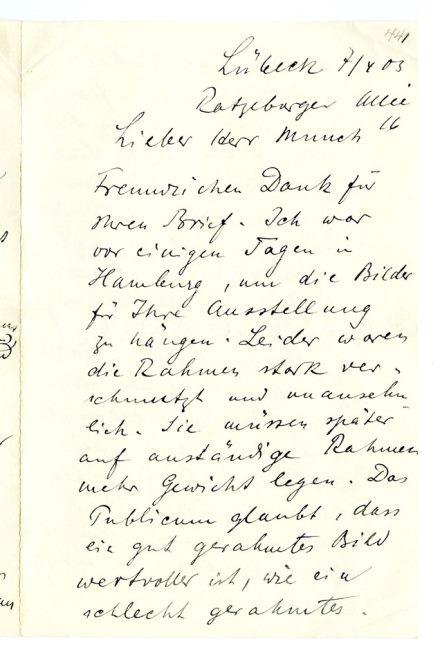 441
Lübeck 7/4 03
Ratzeburger Allee
16
Lieber Herr Munch
Freundlichen Dank für
Ihren Brief. Ich war
vor einigen Tagen in
Hamburg, um die Bilder
für Ihre Ausstellung
zu hängen. Leider waren
die Rahmen stark ver-
schmutzt und unansehn
lich. Sie müssen später
auf anständige Rahmen
mehr Gewicht legen. Das
Publicum glaubt, dass
ein gut gerahmtes Bild
wertvoller ist, wie ein
schlecht gerahmtes.